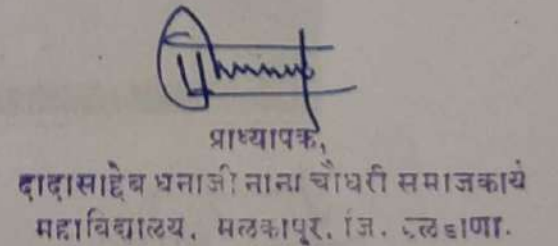 प्राध्यापक,
दादासाहेब धनाजी नाना चौधरी समाजकार्य
महाविद्यालय, मलकापूर, जि. बुलडाणा.